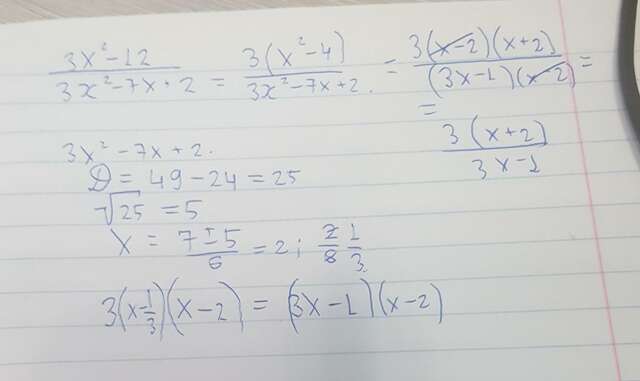 (3x²-12)/(3x²-7x+2) = 3(x²-4)/(3x²-7x+2) = 3(x-2)(x+2)/(3x-1)(x-2) =
= 3(x+2)/(3x-1)
3x²-7x+2.
D = 49-24 = 25
√25 = 5
x = (7±5)/6 = 2; 2/8 1/3
3(x-1/3)(x-2) = (3x-1)(x-2)